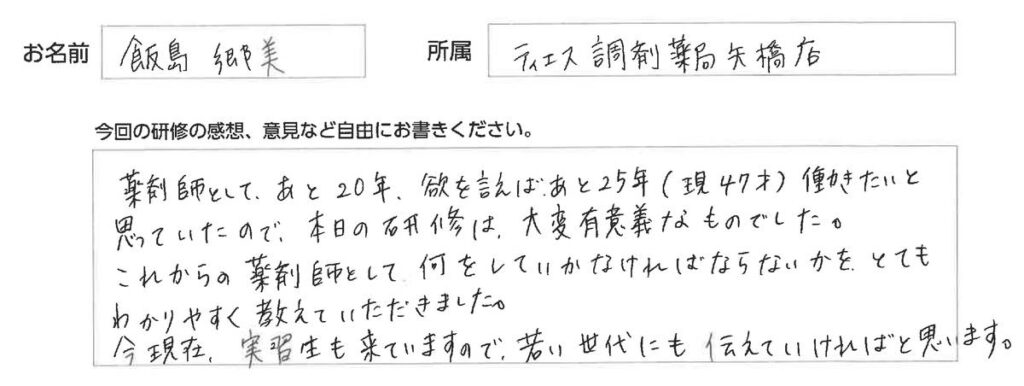 お名前 飯島 郷美 所属 ティエス調剤薬局矢橋店
今回の研修の感想、意見など自由にお書きください。
薬剤師として、あと20年、欲を言えば、あと25年(現47才)働きたいと
思っていたので、本日の研修は、大変有意義なものでした。
これからの薬剤師として、何をしていかなければならないかを、とても
わかりやすく教えていただきました。
今現在、実習生も来ていますので、若い世代にも伝えていければと思います。